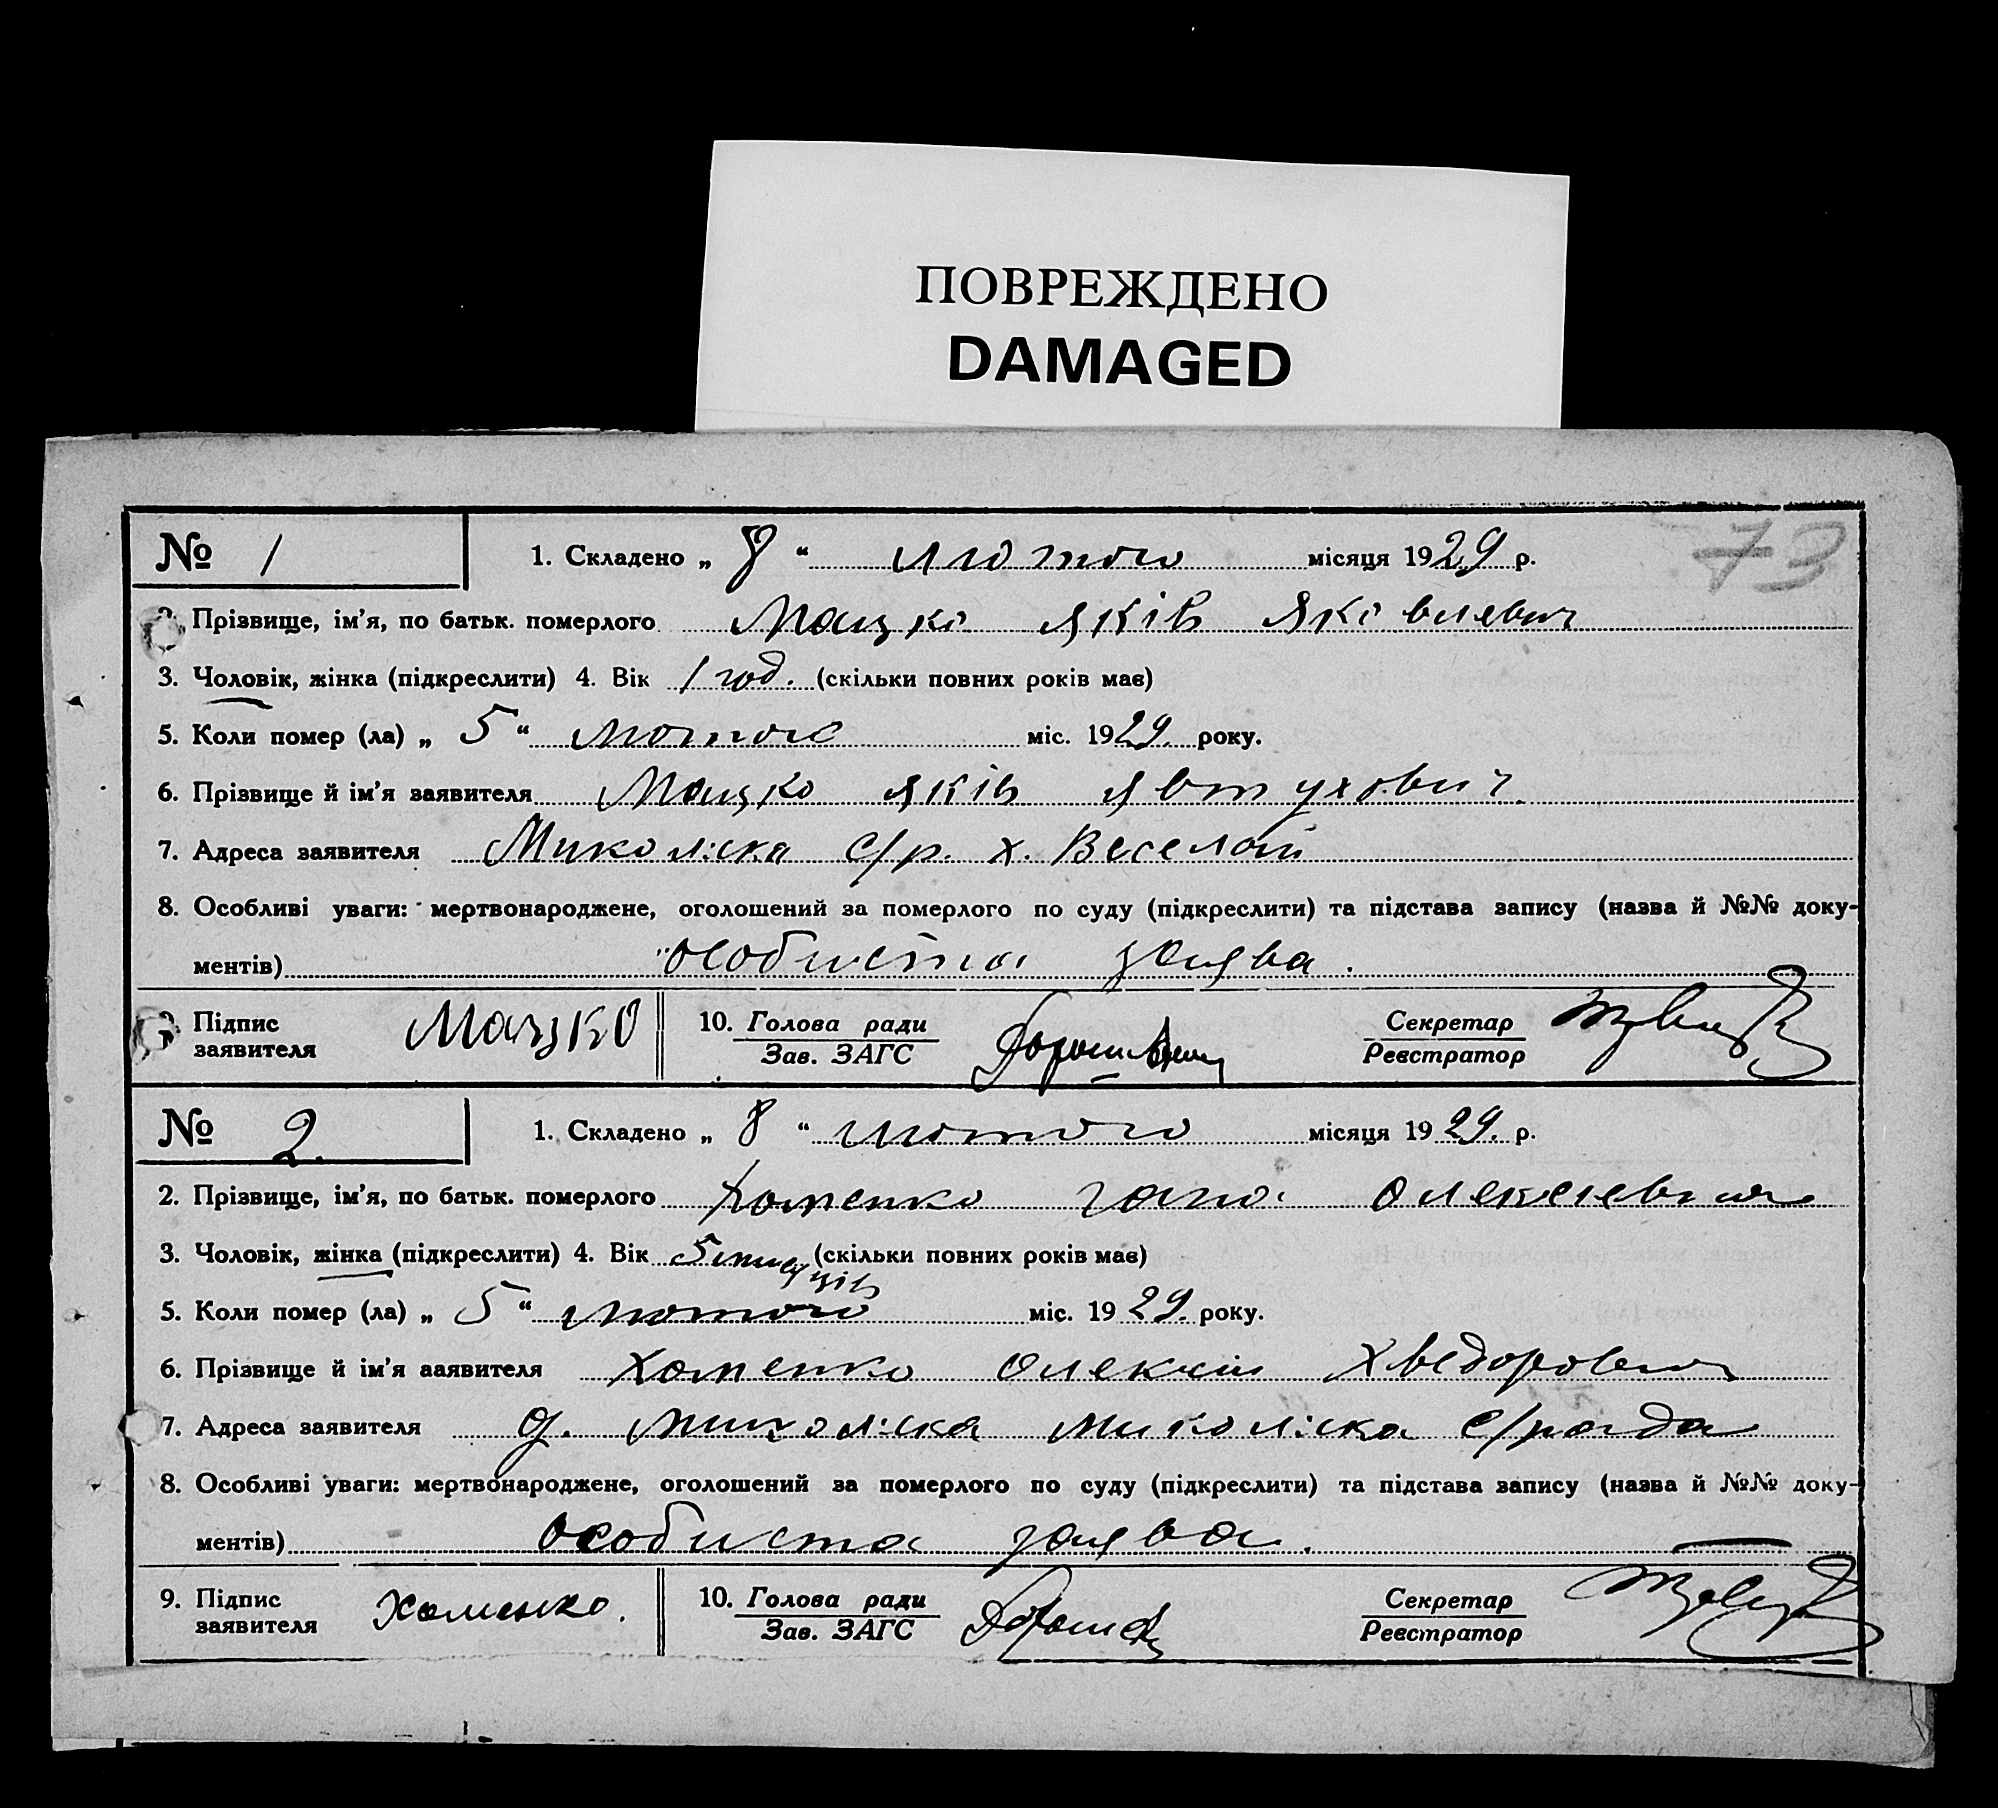 ПОВРЕЖДЕНО
DAMAGED
73
№ 1
1. Складено „ 8 “ лютого місяця 1929 р.
2. Прізвище, ім'я, по батьк. померлого Мацко Яків Яківлевич
3. Чоловік, жінка (підкреслити) 4. Вік 1 год. (скільки повних років має)
5. Коли помер (ла) „ 5 “ лютого міс. 1929. року.
6. Прізвище й ім'я заявителя Мацко Яків Явтухович.
7. Адреса заявителя Миколіска с/р. х. Веселий
8. Особливі уваги: мертвонароджене, оголошений за померлого по суду (підкреслити) та підстава запису (назва й №№ доку-
ментів) особиста заява.
9. Підпис заявителя Мацко 10. Голова ради Секретар
Зав. ЗАГС Реєстратор
№ 2.
1. Складено „ 8 “ лютого місяця 1929. р.
2. Прізвище, ім'я, по батьк. померлого Хоменко Гана Олексіевна
3. Чоловік, жінка (підкреслити) 4. Вік 5 місяців (скільки повних років має)
5. Коли помер (ла) „ 5 “ лютого міс. 1929. року.
6. Прізвище й ім'я ааявителя Хоменко Олексій Хведорович
7. Адреса заявителя Миколіска Миколіска с/рада
8. Особливі уваги: мертвонароджене, оголошений за померлого по суду (підкреслити) та підстава запису (назва й №№ доку-
ментів) особиста заява.
9. Підпис заявителя Хоменко. 10. Голова ради Секретар
Зав. ЗАГС Реєстратор